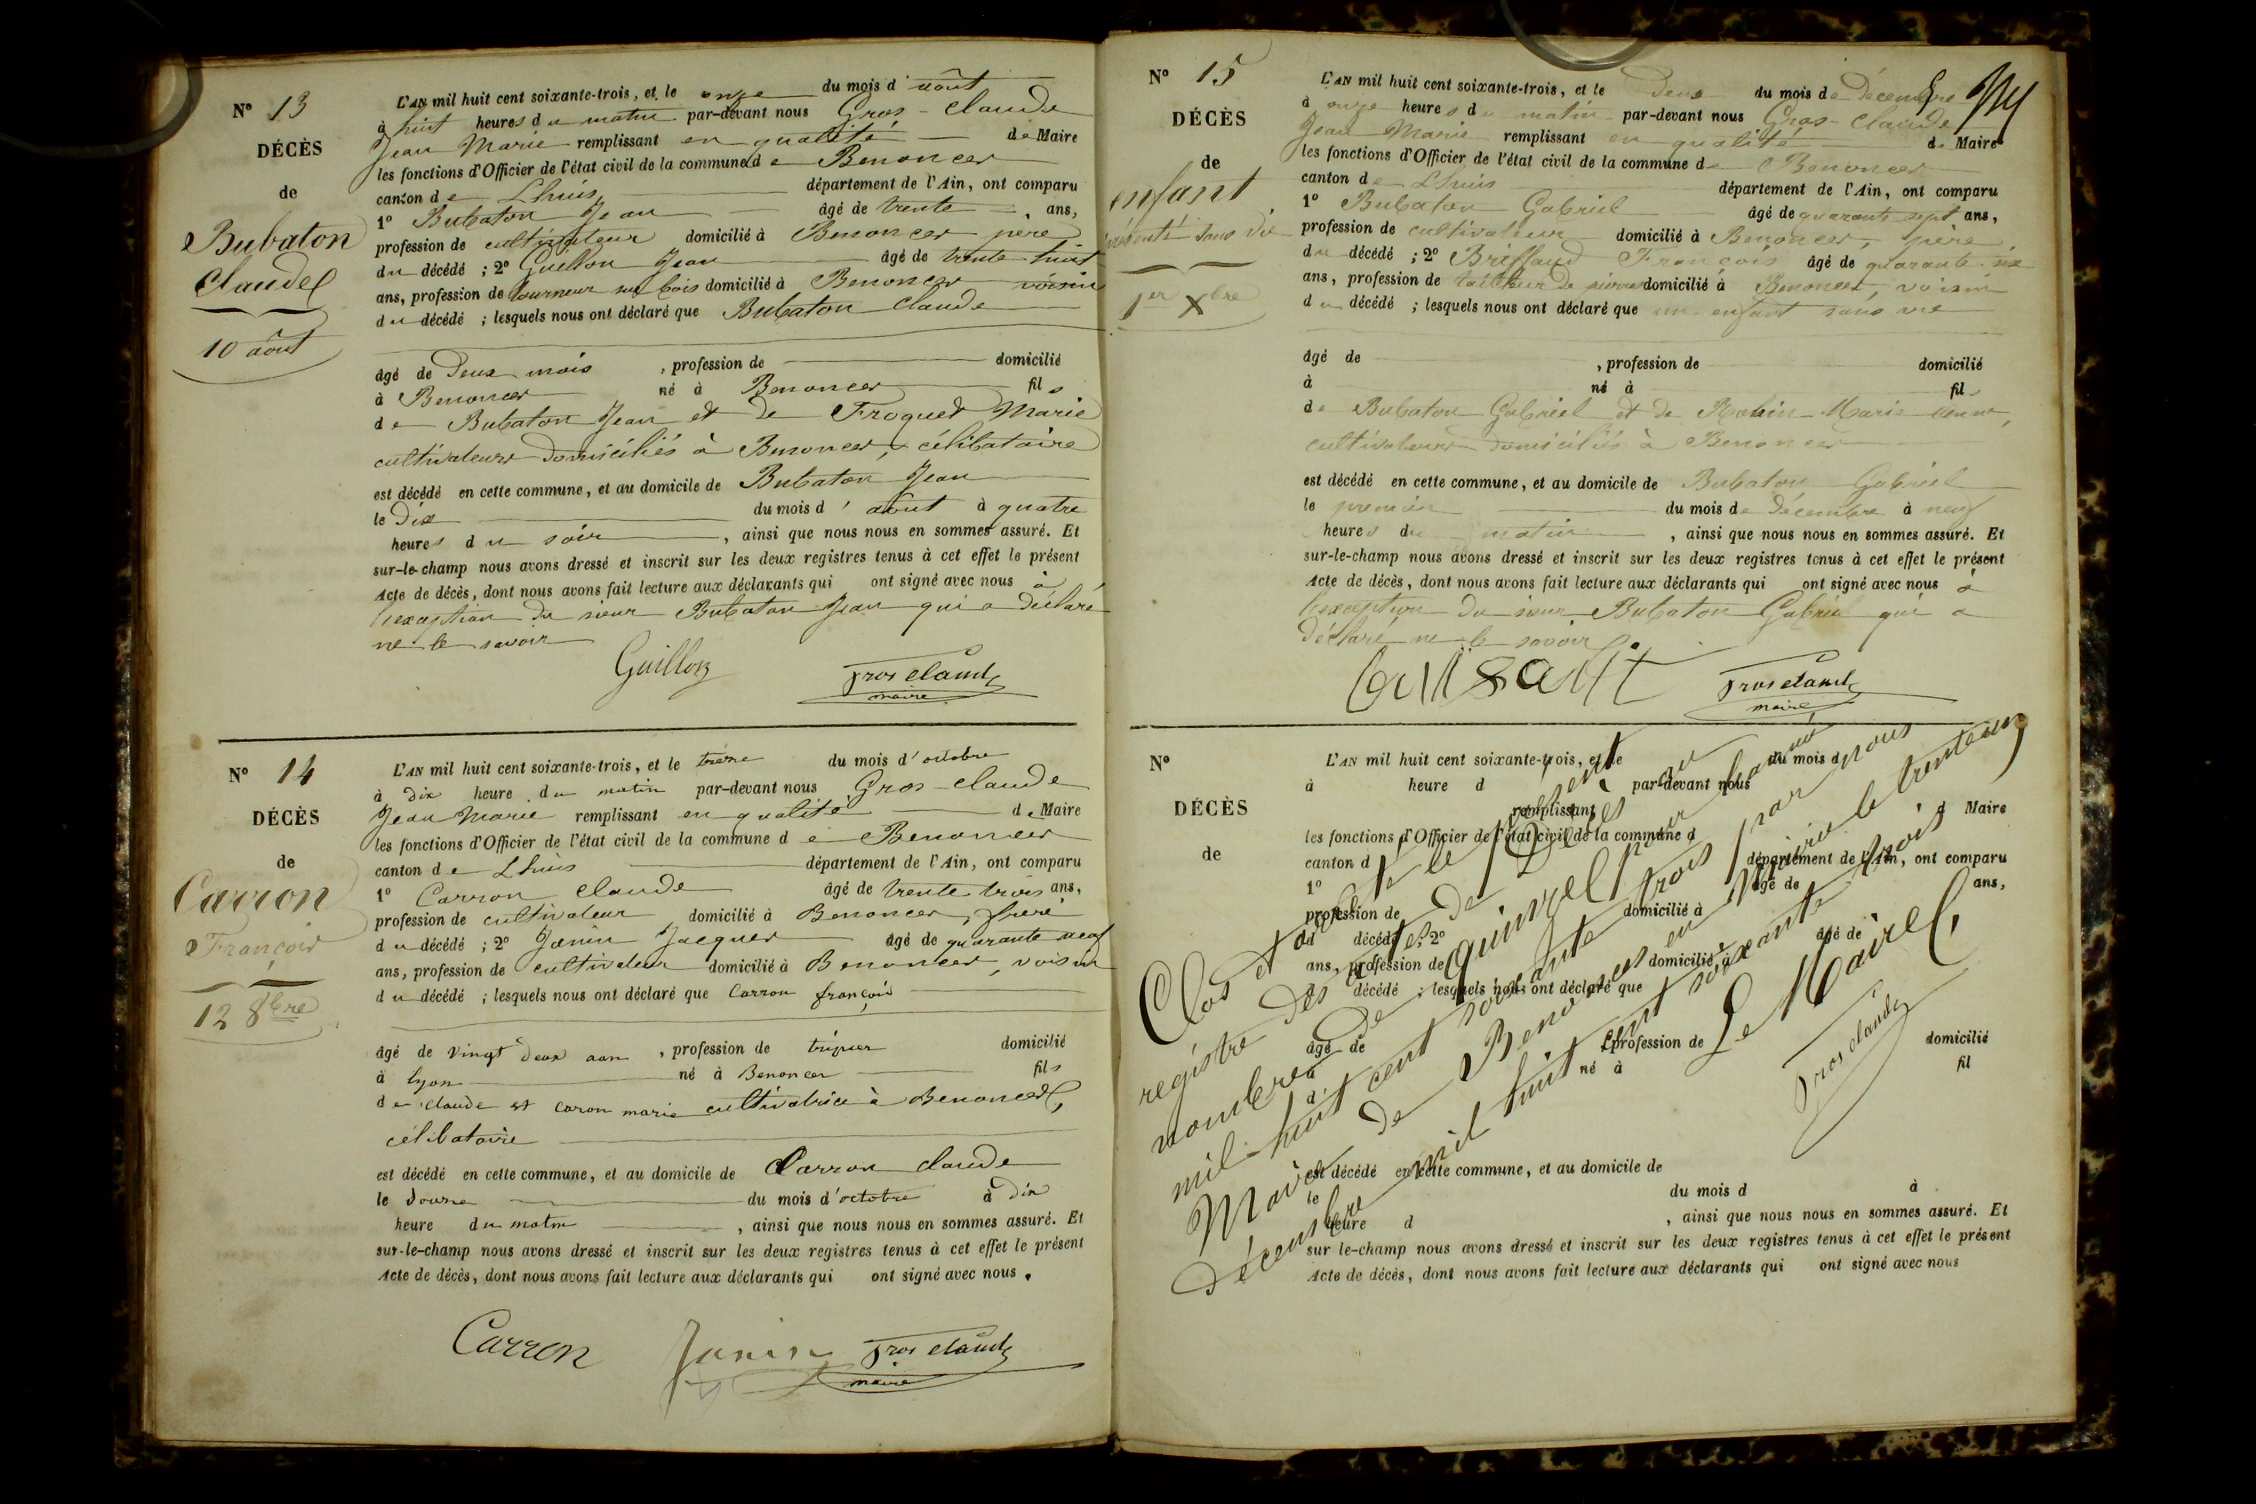 N° 13
DÉCÈS
de
Bubaton
Claude
10 août
L'AN mil huit cent soixante-trois, et le onze du mois d'août
à huit heures du matin par-devant nous Gros-Claude
Jean Marie remplissant en qualité de Maire
les fonctions d'Officier de l'état civil de la commune de Benonces
canton de Lhuis département de l'Ain, ont comparu
1° Bubaton Jean âgé de trente ans,
profession de cultivateur domicilié à Benonces père
du décédé ; 2° Guillon Jean âgé de trente huit
ans, profession de tourneur sur bois domicilié à Benonces voisin
du décédé ; lesquels nous ont déclaré que Bubaton Claude
âgé de deux mois , profession de domicilié
à Benonces né à Benonces fils
de Bubaton Jean et de Froquet Marie
cultivateurs domiciliés à Benonces, célibataire
est décédé en cette commune, et au domicile de Bubaton Jean
le dix du mois d'août à quatre
heures du soir , ainsi que nous nous en sommes assuré. Et
sur-le-champ nous avons dressé et inscrit sur les deux registres tenus à cet effet le présent
Acte de décès, dont nous avons fait lecture aux déclarants qui ont signé avec nous à
l'exception du sieur Bubaton Jean qui a déclaré
ne le savoir
Guillon Gros claude
maire
N° 14
DÉCÈS
de
Carron
François
12 8bre
L'AN mil huit cent soixante-trois, et le treize du mois d'octobre
à dix heure du matin par-devant nous Gros-Claude
Jean Marie remplissant en qualité de Maire
les fonctions d'Officier de l'état civil de la commune de Benonces
canton de Lhuis département de l'Ain, ont comparu
1° Carron Claude âgé de trente trois ans,
profession de cultivateur domicilié à Benonces, frère
du décédé ; 2° Janin Jacques âgé de quarante neuf
ans, profession de cultivateur domicilié à Benonces, voisin
du décédé ; lesquels nous ont déclaré que Carron françois
âgé de vingt deux ans , profession de domicilié
à lyon né à Benonces fils
de claude et caron marie cultivatrice à Benonces,
célibataire
est décédé en cette commune, et au domicile de Carron Claude
le douze du mois d'octobre à dix
heure du matin , ainsi que nous nous en sommes assuré. Et
sur-le-champ nous avons dressé et inscrit sur les deux registres tenus à cet effet le présent
Acte de décès, dont nous avons fait lecture aux déclarants qui ont signé avec nous.
Carron Janin Gros claude
maire
N° 15
DÉCÈS
de
enfant
présenté sans vie
1er Xbre
L'AN mil huit cent soixante-trois, et le deux du mois de Décembre
à onze heures du matin par-devant nous Gros-Claude
Jean Marie remplissant en qualité de Maire
les fonctions d'Officier de l'état civil de la commune de Benonces
canton de Lhuis département de l'Ain, ont comparu
1° Bubaton Gabriel âgé de quarante sept ans,
profession de cultivateur domicilié à Benonces, père
du décédé ; 2° Briffaud François âgé de quarante
ans, profession de tailleur de pierre domicilié à Benonces, voisin
du décédé ; lesquels nous ont déclaré que un enfant sans vie
âgé de , profession de domicilié
à né à fils
de Bubaton Gabriel et de Marie
cultivateurs domiciliés à Benonces
est décédé en cette commune, et au domicile de Bubaton Gabriel
le premier du mois de Décembre à neuf
heures du matin , ainsi que nous nous en sommes assuré. Et
sur-le-champ nous avons dressé et inscrit sur les deux registres tenus à cet effet le présent
Acte de décès, dont nous avons fait lecture aux déclarants qui ont signé avec nous à
l'exception du sieur Bubaton Gabriel qui a
déclaré ne le savoir
Gros claude
maire
N°
DÉCÈS
de
L'AN mil huit cent soixante-trois, et le du mois d
à heure d par-devant nous
remplissant d Maire
les fonctions d'Officier de l'état civil de la commune d
canton d département de l'Ain, ont comparu
1° âgé de ans,
profession de domicilié à
d décédé ; 2° âgé de
ans, profession de domicilié à
d décédé ; lesquels nous ont déclaré que
âgé de , profession de domicilié
à né à fil
d
est décédé en cette commune, et au domicile de
le du mois d à
heure d , ainsi que nous nous en sommes assuré. Et
sur le-champ nous avons dressé et inscrit sur les deux registres tenus à cet effet le présent
Acte de décès, dont nous avons fait lecture aux déclarants qui ont signé avec nous
Clos et arrêté le présent
registre des actes de Décès au
nombre de quinze pour l'année
mil huit cent soixante trois par nous
Maire de Benonces en Mairie le trente un
décembre mil huit cent soixante trois
Le Maire,
Gros claude